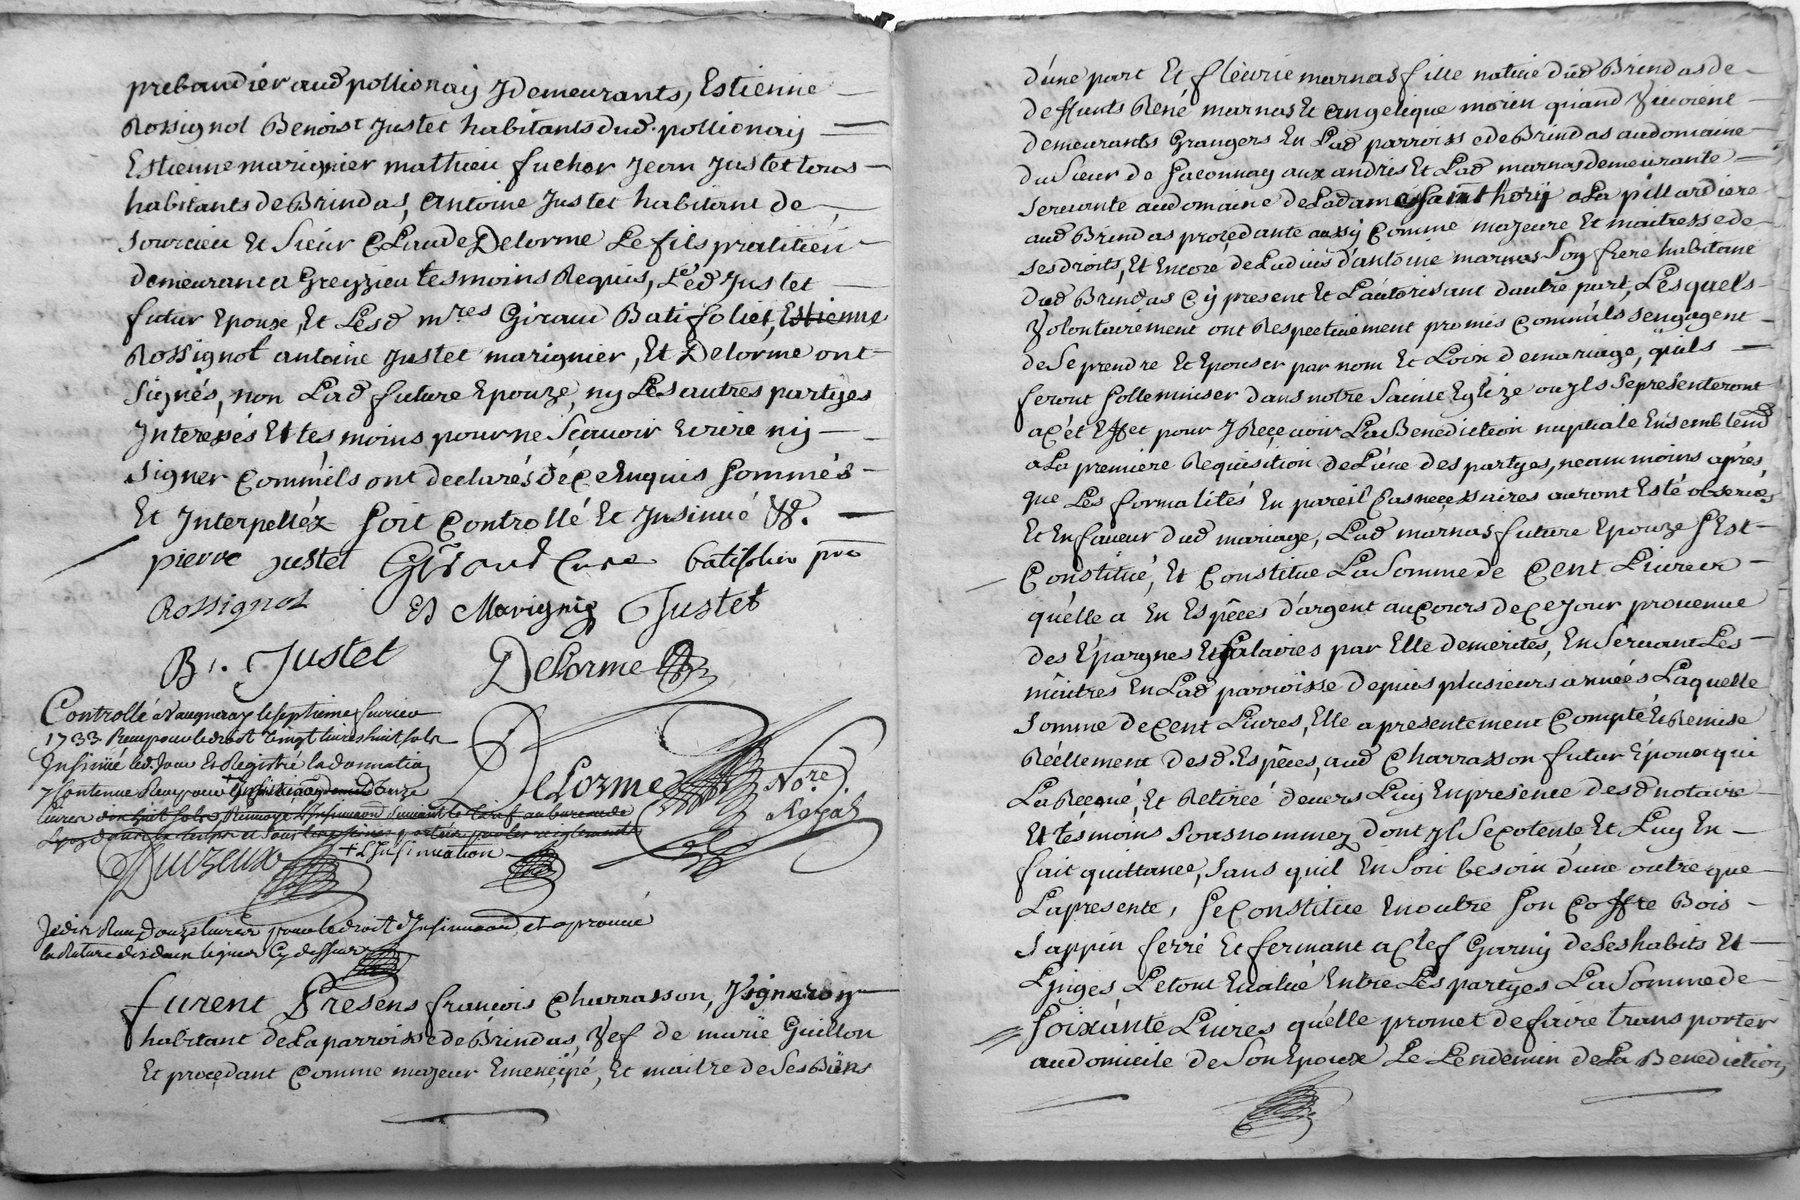 prebandier aud pollionay y demeurants, Estienne
Rossignol Benoist Justet habitants dud. pollionay
Estienne marignier mathieu fucher Jean Justet tous
habitants de Brindas, antoine Justet habitant de
Sourcieu Et Sieur Claude Delorme Le fils pratitien
demeurant a Greyzieu tesmoins Requis, Led Justet
futur Epoux, Et Lesd mres Giraud Batifolier, Estienne
Rossignol antoine Justet marignier, Et Delorme ont
signés, non Lad future Epouze, ny Les autres partyes
Interessés Et tesmoins pour ne Sçavoir Ecrire ny
signer Comm'ils ont declarés de ce Enquis Sommés
Et Interpelléz Soit Controllé Et Insinué &.
pierre justet Giraud Cure batifolier pre
Rossignol Et Marignie Justet
B. Justet Delorme
Controllé a Vaugneray le septieme fevrier
1733 Receu pour le droit vingt livres huit sols
Insinué led. Jour Et Registré la donnation
y Contenue Receu pour
livres dix huit sols
Delorme Nore. Royal
+ L'Insinuation
Je dis Receu douze livres pour le droit d'Insinuaon, et aprouué
la Rature des deux lignes Cy dessus
furent Presens francois Charrasson, Vigneron
habitant de La parroisse de Brindas, Vef de marie Guillon
Et procedant Comme majeur Emencipé, Et maitre de Ses Biens
d'une part Et fleurie marnas fille natiue dud Brindas de
deffunts René marnas Et angelique morien quand Viuoient
demeurants Grangers En Lad parroisse de Brindas au domaine
du Sieur de Faconnay aux andrés Et Lad marnas demeurante
seruante au domaine de La dame Saint hory a La pillardiere
aud Brindas procedante aussy Comme majeure Et maitresse de
ses droits, Et Encore de L'aduis d'antoine marnas Son frere habitant
dud Brindas Cy present Et L'autorisant d'autre part, Lesquels
Volontairement ont Respectiuement promis Comm'ils s'engagent
de Se prendre Et Epouser par nom Et Loix de mariage, qu'ils
feront Sollemniser dans notre Sainte Eglize ou yls Se presenteront
a Cét Effet pour y Reçeuoir La Benediction nuptiale Ensemblemd
a La premiere Requisition de L'une des partyes, neanmoins aprés
que Les formalités En pareil Cas necessaires auront Esté obserués
Et En faueur dud mariage, Lad marnas future Epouze S'Est
Constitué, Et Constitue La Somme de Cent Liures
qu'elle a En Espêces d'argent au Cours de Ce Jour prouenue
des Epargnes Et Salaires par Elle merités, En Seruant Les
mêitres En Lad parroisse depuis plusieurs années Laquelle
Somme de Cent Liures, Elle a presentement Compté Et Remise
Réellement Desd. Espêces, aud Charrasson futur Epoux qui
La Reçeue, Et Retireé deuers Luy En presence desd notaire
Et tésmoins Sousnommez dont yl Se Contente Et Luy En
fait quittance, Sans quil En Soit besoin d'une autre que
La presente, Se Constitue En outre Son Coffre Bois
Sappin ferré Et fermant a Clef Garny de Ses habits Et
Linges Le tout Eualué Entre Les partyes La Somme de
Soixante Liures qu'elle promet de faire transporter
au domicile de Son Epoux Le Lendemin de La Benediction